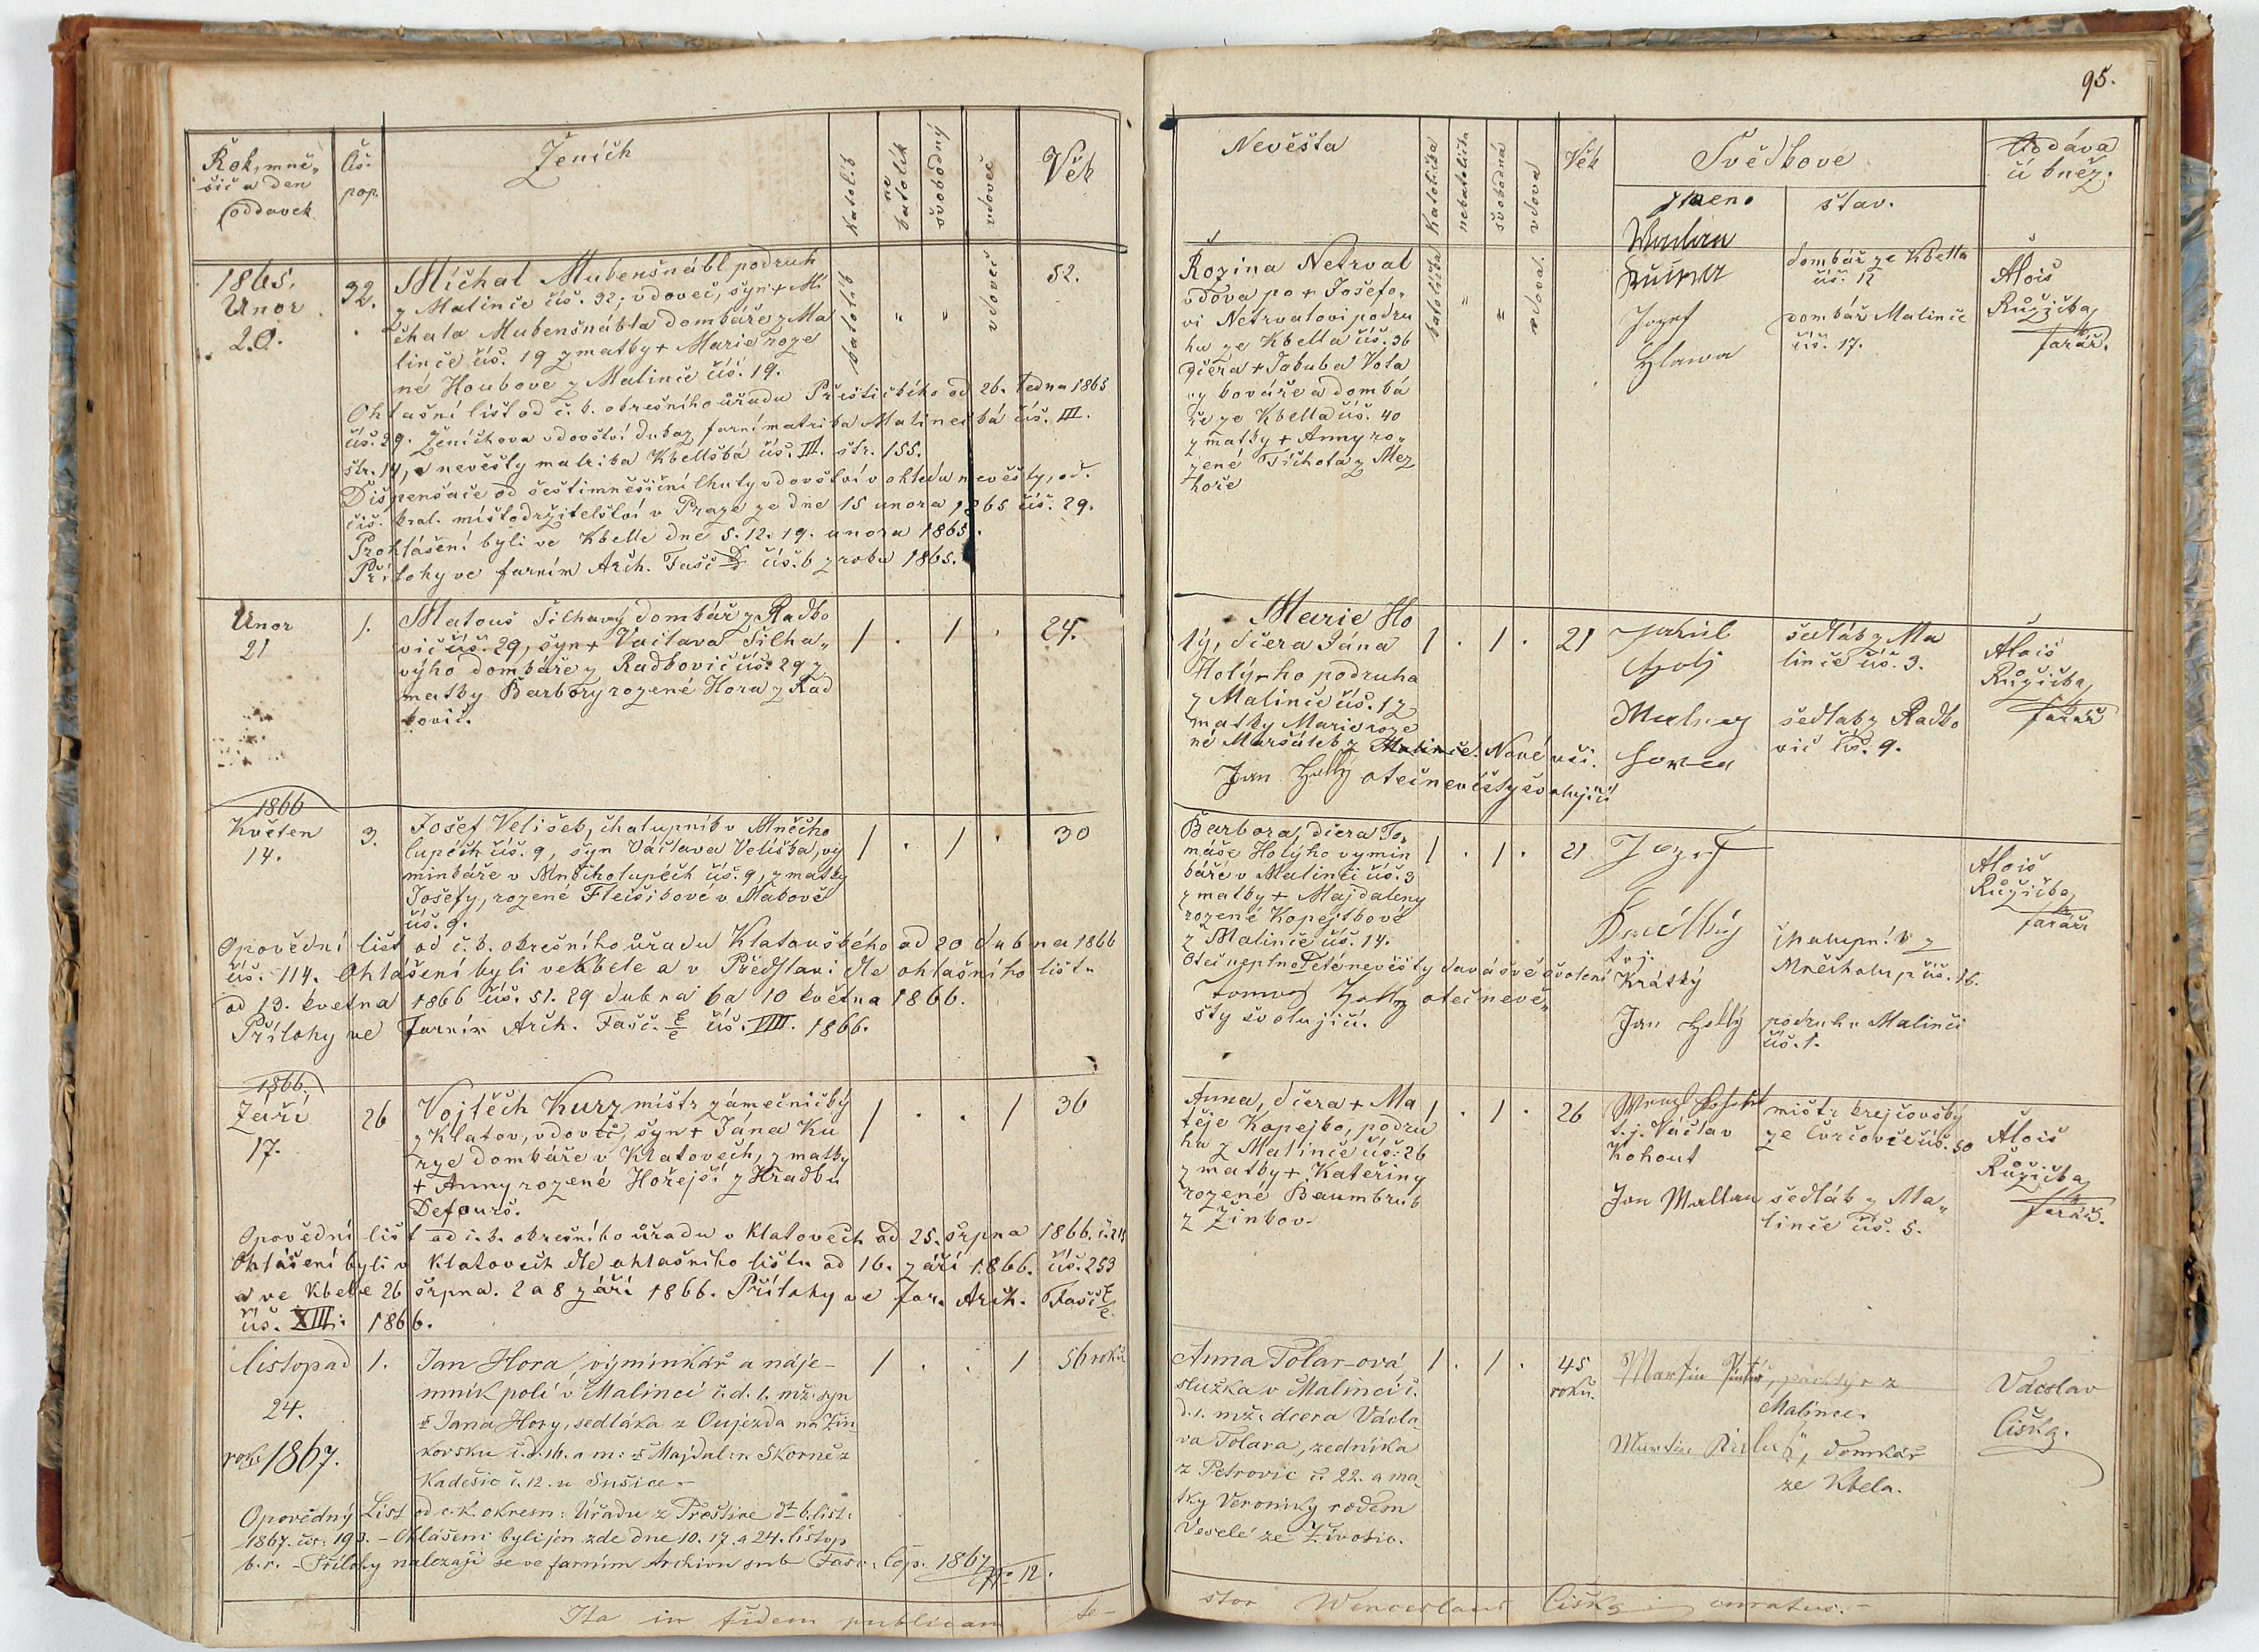 95.
Rok, mně„
síc a den
oddavek
Čís.
pop.
Ženich
katolík
ne
katolík
svobodný
vdovec
Věk
1865.
Unor
20.
32.
Michal Mubenšnábl podruh
z Malince čís. 32; vdovec, syn + Mi
chala Mubenšnábla domkáře z Ma
lince čís. 19 z matky + Marie roze
né Houbove z Malince čís. 19.
katolík
"
"
vdovec
52.
Ohlašní list od c. k. okresního ůřadu Přestického od 26. ledna 1865
čís. 29. Ženichova vdovství dukaz farní matrika Malinecká čís. III.
str. 14, a nevěsty matrika Kbellská čís. III. str. 155.
Dispensace od šestiměsíční lhuty vdovství v ohledu nevěsty, od
cis. kral. místodržitelství v Praze ze dne 15 unora 1865 čís. 29.
Prohlášení byli ve Kbelle dne 5. 12. 19. unora 1865.
Přílohy ve farním Arch. Fasc čís. 6 z roku 1865.
Unor
21
1.
Matouš Silhavý domkář z Radko
vic čís. 29, syn + Václava Silha„
výho domkáře z Radkovic čís. 29 z
matky Barbory rozené Hora z Rad
kovic.
1 . 1 .
24.
1866
Květen
14.
3.
Josef Velíšek, chalupník v Mněcho
lupéch čís. 9, syn Václava Velíška, vý
minkáře v Mněcholupéch čís. 9, z matky
Josefy, rozené Fleisikové v Makové
čís. 9.
1 . 1 .
30
Opovědní list od c. k. okresního ůřadu Klatouského od 20 dubna 1866
čís. 114. Ohlášení byli ve Kbele a v Předslavi dle ohlašního listu
od 13. května 1866 čís. 51. 29 dubna 6 a 10 května 1866.
Přílohy ve farním Arch. Fasc. čís. VIII. 1866.
1866.
Zaří
17.
26
Vojtěch Kurz mistr zámečnický
z Klatov, vdovec, syn + Jána Ku
rze domkáře v Klatovech, z matky
+ Anny rozené Hořejší z Hradku
Defours.
1 . . 1
36
Opovědní list od c. k. okresního ůřadu v Klatovech od 25. srpna 1866. č. 211
Ohlášení byli v Klatovech dle ohlašního listu od 16. září 1866. čís. 253
a ve Kbele 26 srpna. 2 a 8 září 1866. Přílohy ve far. Arch. Fasc
čís. XIII: 1866.
listopad
24.
roku 1867.
1.
Jan Hora, výminkář a náje-
mník polí v Malinci č. d. 1. mž: syn
+ Jana Hory, sedláka z Oujezda na Žin
kovsku č. d. 16. a m: + Majdal: r. Skorně z
Kadešic č. 12. u Sušice.-
1 . . 1
56 roků
Opovědný List od c. k. okresn: Úřadu z Přestice dt 6. list:
1867. čís: 193. - Ohlášeni byli jen zde dne 10. 17. a 24. listop
b. r. - Přílohy nalezají se ve farním Archivu sub Fasc: Cop. 1867
No 12.
Ita in fidem publicam te-
Nevěsta
Katolička
nekatolička
svobodná
vdova
Věk
Svědkove
Jmeno
stav.
Oddáva
ci kněz.
Rozina Netrval
vdova po + Josefo„
vi Netrvalovi podru
hu ze Kbella čís. 36
dcera + Jakuba Vola
kováře a domká
ře ze Kbella čís. 40
z matky + Anny ro„
zené Tichota z Mez
hoře
katolička
"
"
vdova.
Wenlin
Růžička
domkář ze Kbella
čís. 12
Jozef
Hlawa
domkář Malince
čís. 17.
Alois
Růžička,
farář.
Marie Ho
lý, dcera Jána
Holýho podruha
z Malince čís. 1 z
matky Marie roze
né Maršálek z Malince. Nové vsi.
Jan Hollý otec nevěsty svolující
1 . 1 .
21
Jakub
Holý
sedlák z Ma
lince čís. 3.
sedlak z Radko
vic čís. 9.
Alois
Růžička,
farář
Barbora, dcera To„
máše Holýho vymin
káře v Malinci čís. 3
z matky + Majdaleny
rozené Kopejtkové
z Malince čís. 14.
Otec neplnoleté nevěsty dává své svolení
Tomas Hollý otec nevě„
sty svolující.
1 . 1 .
21
Jozef
t. j.
Krátký
chalupník z
Mněcholup čís. 16.
Jan Hollý
podruh v Malinci
čís. 1.
Alois
Růžička,
farář
Anna, dcera + Ma
těje Kopejko, podru
hu z Malince čís. 26
z matky + Kateřiny
rozené Baumbruk
z Žinkov.
1 . 1 .
26
Wenzl Kohout
t. j. Václav
Kohout
mistr krejčovský
ze Čvrčovce čís. 50
Jan Mallan
sedlák z Ma„
lince čís. 5.
Alois
Růžička,
farář.
Anna Tolar-ová,
služka v Malinci č.
d. 1. mž: dcera Václa
va Tolara, zedníka
z Petrovic č. 22. a ma
tky Veroniky rodem
Veselé ze Životic.
1 . 1 .
45
roků.
Martin
z
Malince.
Martin
domkář
ze Kbela.
Václav
Cisky.
stor Wenceslaus Cisky curatus.-